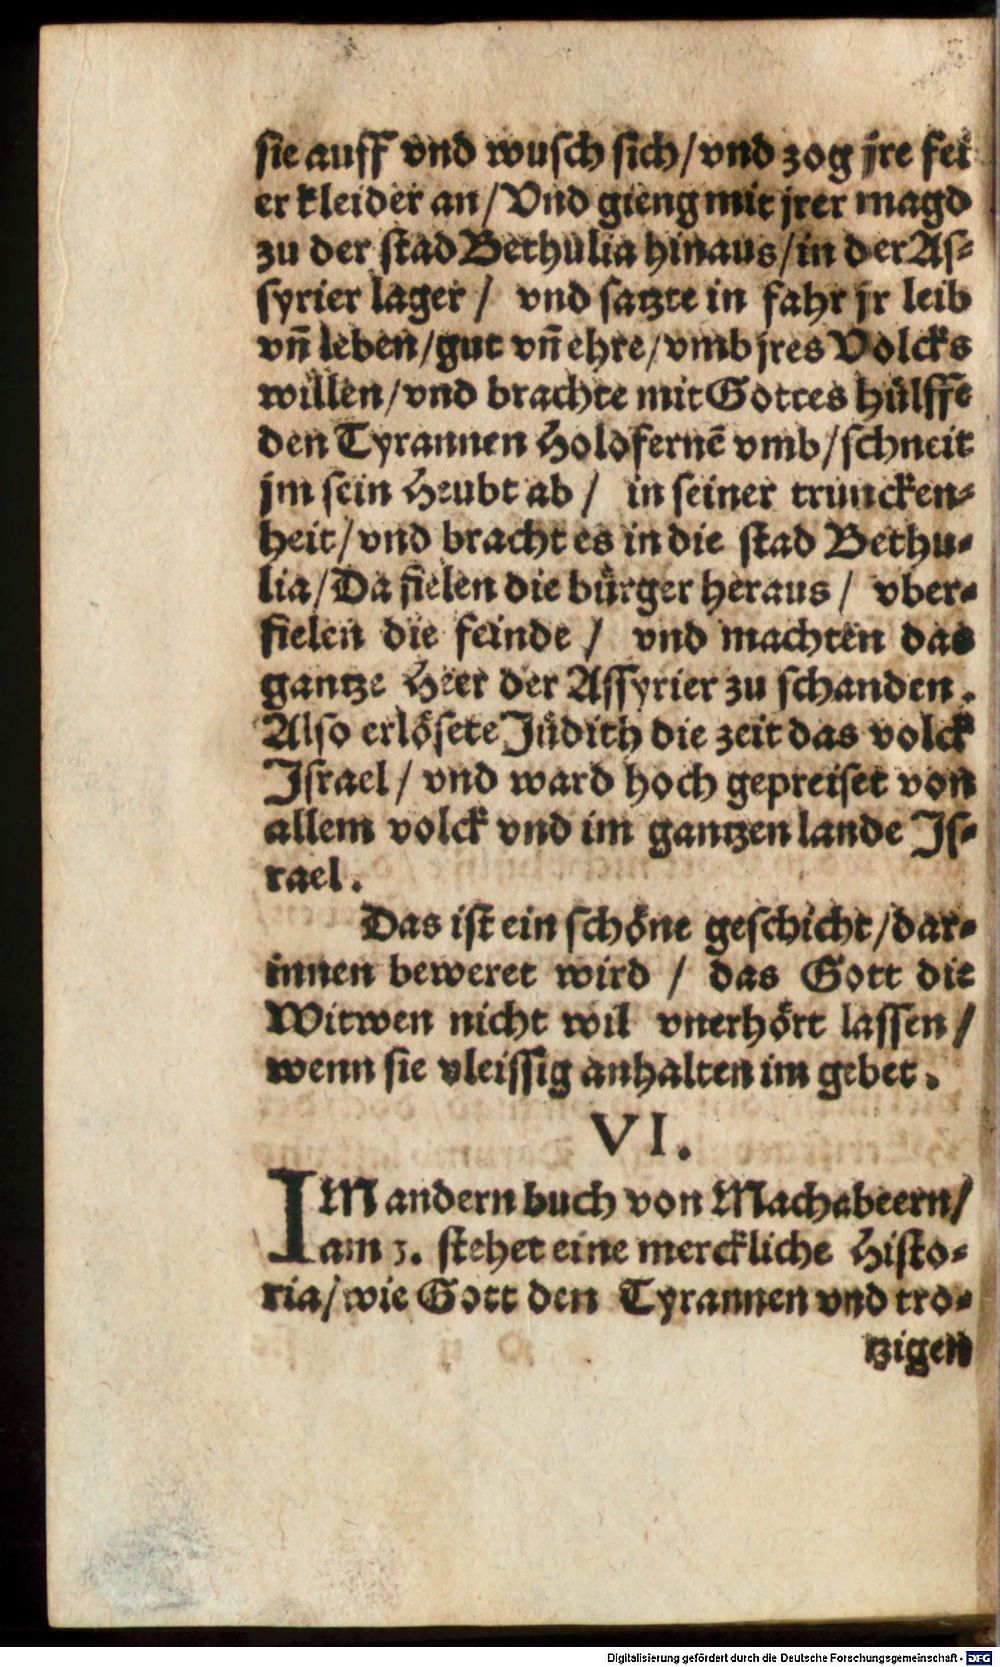 sie auff vnd wusch sich/vnd zog jre fei
er kleider an/Vnd gieng mit jrer magd
zu der stad Bethulia hinaus/in der As⸗
syrier lager/ vnd satzte in fahr jr leib
vn̄ leben/gut vn̄ ehre/vmb jres Volcks
willen/vnd brachte mit Gottes hülffe
den Tyrannen Holofernē vmb/schneit
jm sein Heubt ab/ in seiner truncken⸗
heit/vnd bracht es in die stad Bethu⸗
lia/Da fielen die bürger heraus/ vber⸗
fielen die feinde/ vnd machten das
gantze Heer der Assyrier zu schanden.
Also erlösete Jüdith die zeit das volck
Israel/vnd ward hoch gepreiset von
allem volck vnd im gantzen lande Is⸗
rael.
Das ist ein schöne geschicht/dar⸗
innen beweret wird/ das Gott die
Witwen nicht wil vnerhört lassen/
wenn sie vleissig anhalten im gebet.
VI.
IM andern buch von Machabeern/
am 3. stehet eine merckliche Histo⸗
ria/wie Gott den Tyrannen vnd tro⸗
tzigen
Digitalisierung gefördert durch die Deutsche Forschungsgemeinschaft - DFG